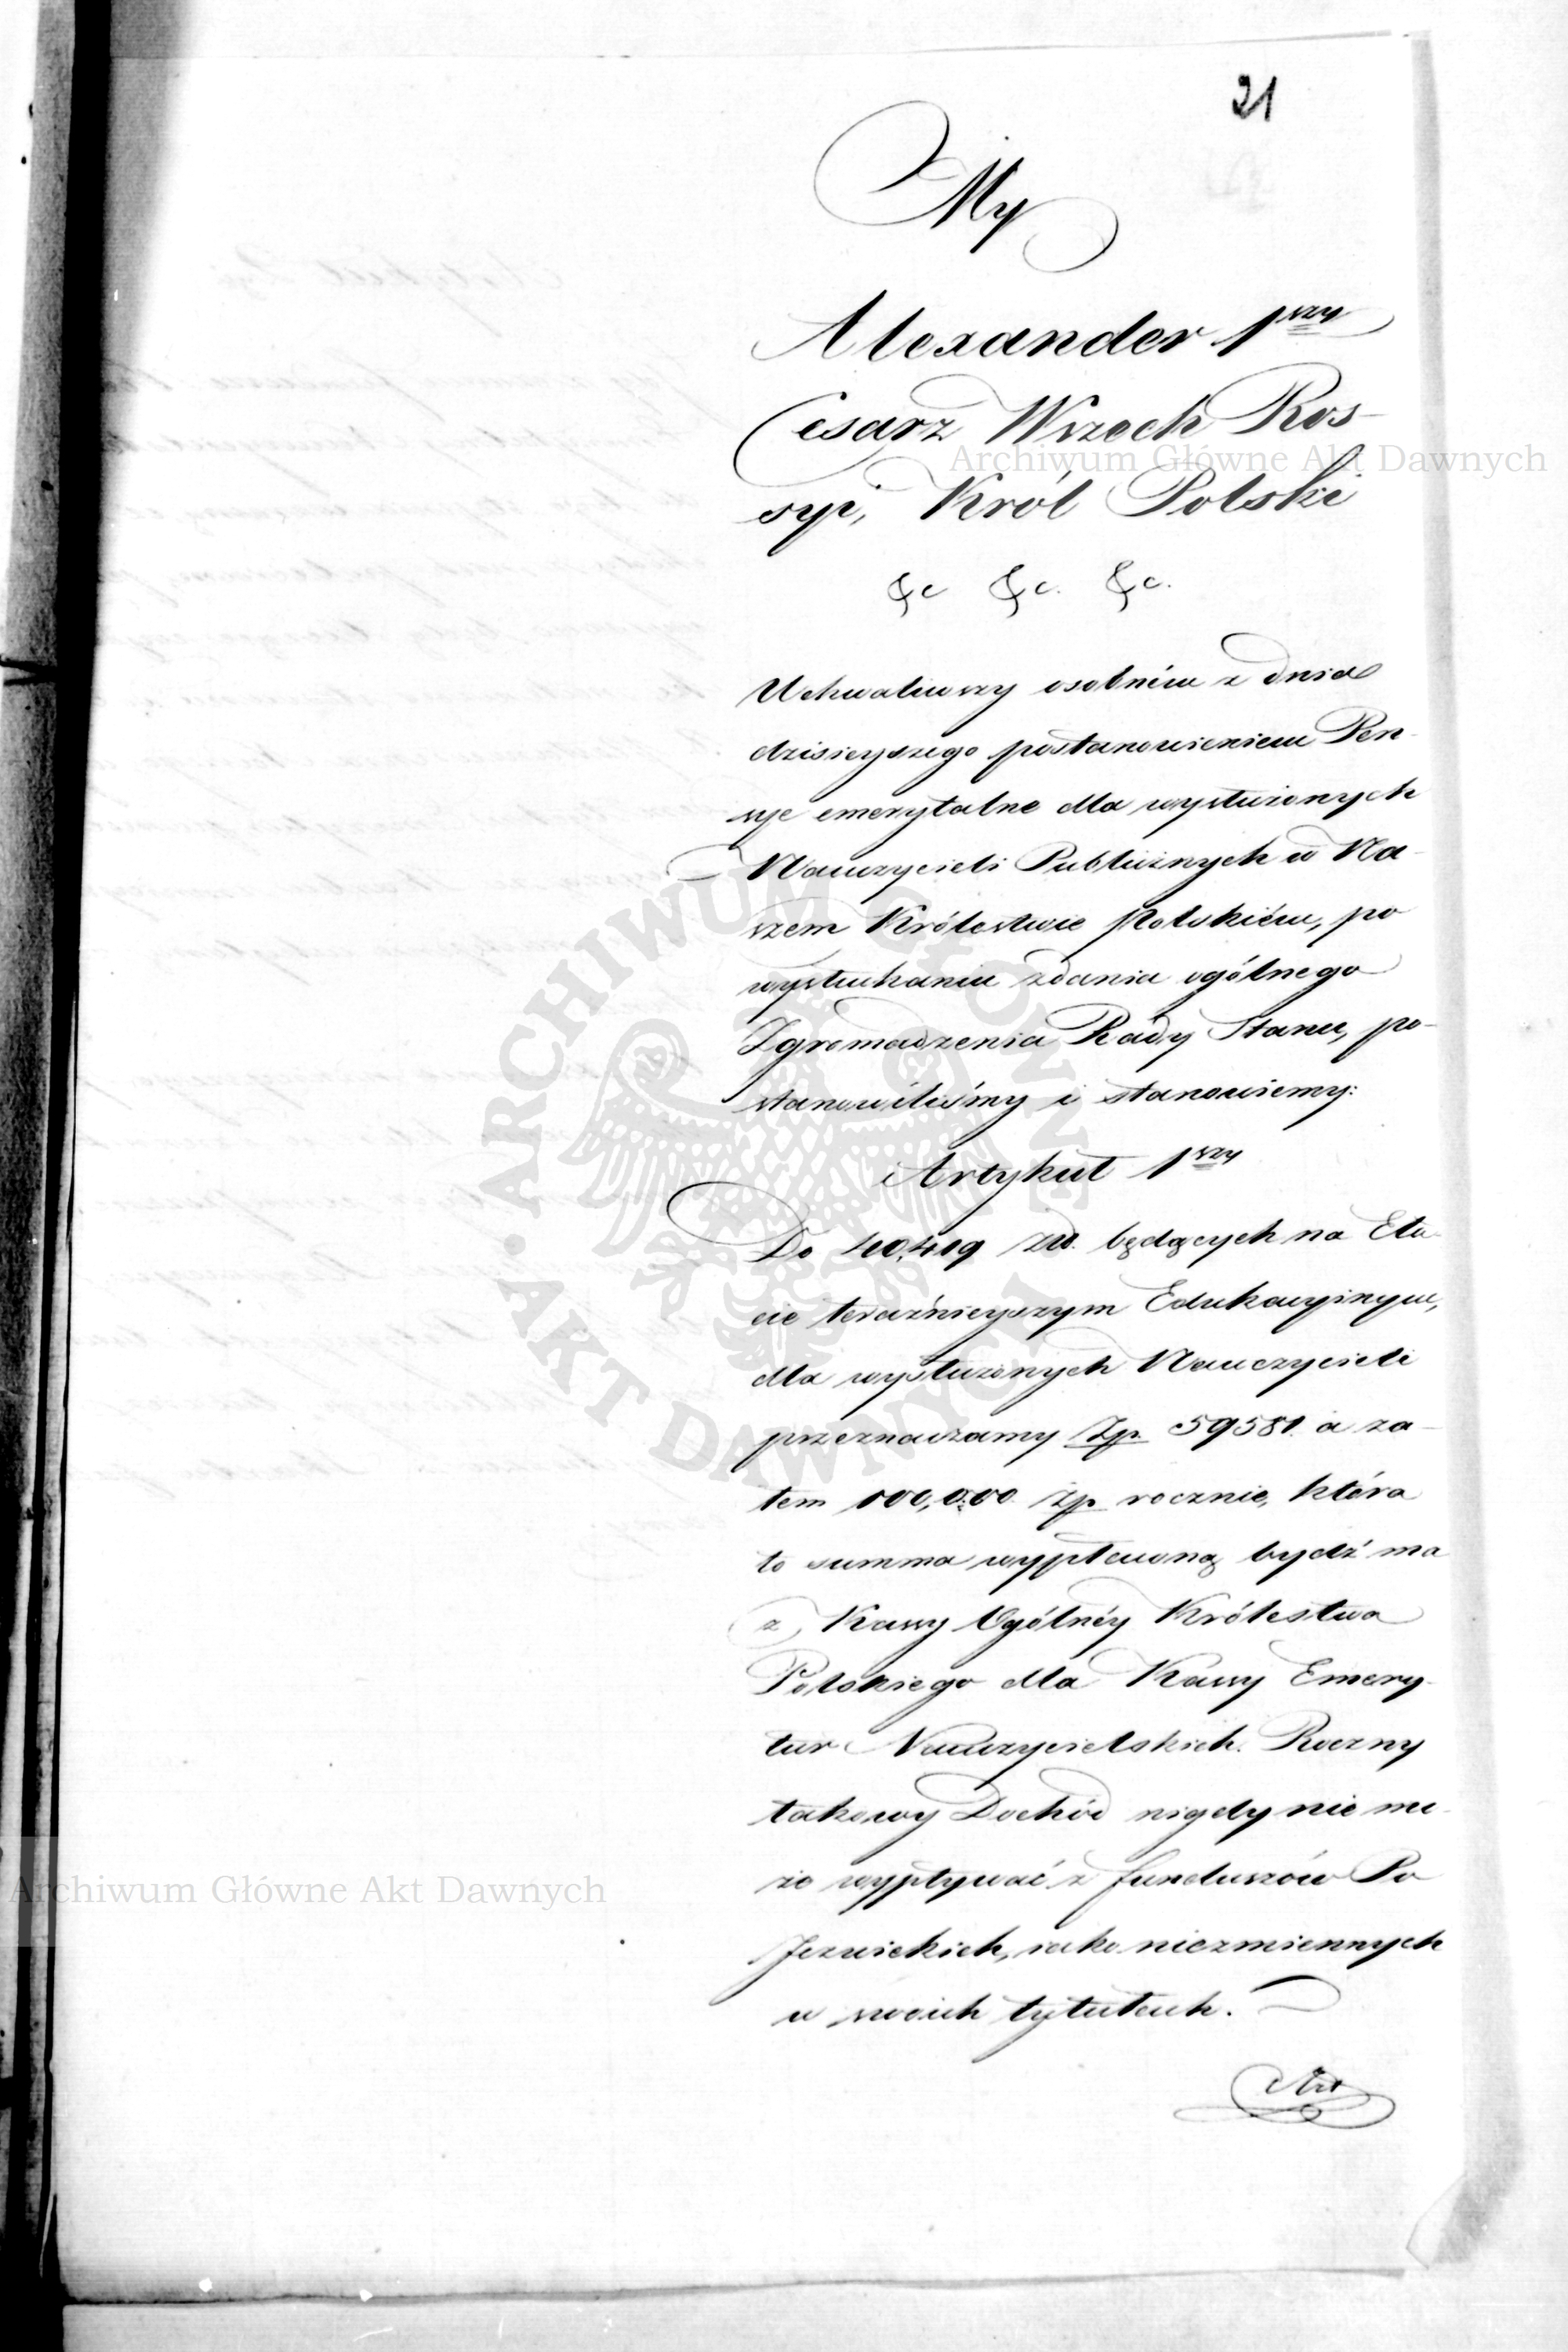 21
My
Alexander 1wszy
Cesarz Wszech Ros-
syi, Król Polski
&c &c. &c.
Uchwaliwszy osobném z dnia
dzisieyszego postanowieniem Pen-
sye emerytalne dla wysłużonych
Nauczycieli Publicznych w Na-
szem Królestwie Polskiém, po
wysłuchaniu zdania ogólnego
Zgromadzenia Rady Stanu, po-
stanowiliśmy i stanowiemy:
Artykuł 1wszy
Do 40,419 złł. będących na Eta-
cie teraźnieyszym Edukacyinym,
dla wysłużonych Nauczycieli
przeznaczamy Zp. 59581. a za-
tem 100,000. Zp. rocznie, która
to summa wypłaconą bydź ma
z Kassy Ogólnéy Królestwa
Polskiego dla Kassy Emery-
tur Nauczycielskich. Roczny
takowy Dochód nigdy nie mo-
że wypływać z funduszów Po
Jezuickich, iako niezmiennych
w swoich tytułach.
Art
Archiwum Główne Akt Dawnych
Archiwum Główne Akt Dawnych
ARCHIWUM GŁÓWNE AKT DAWNYCH